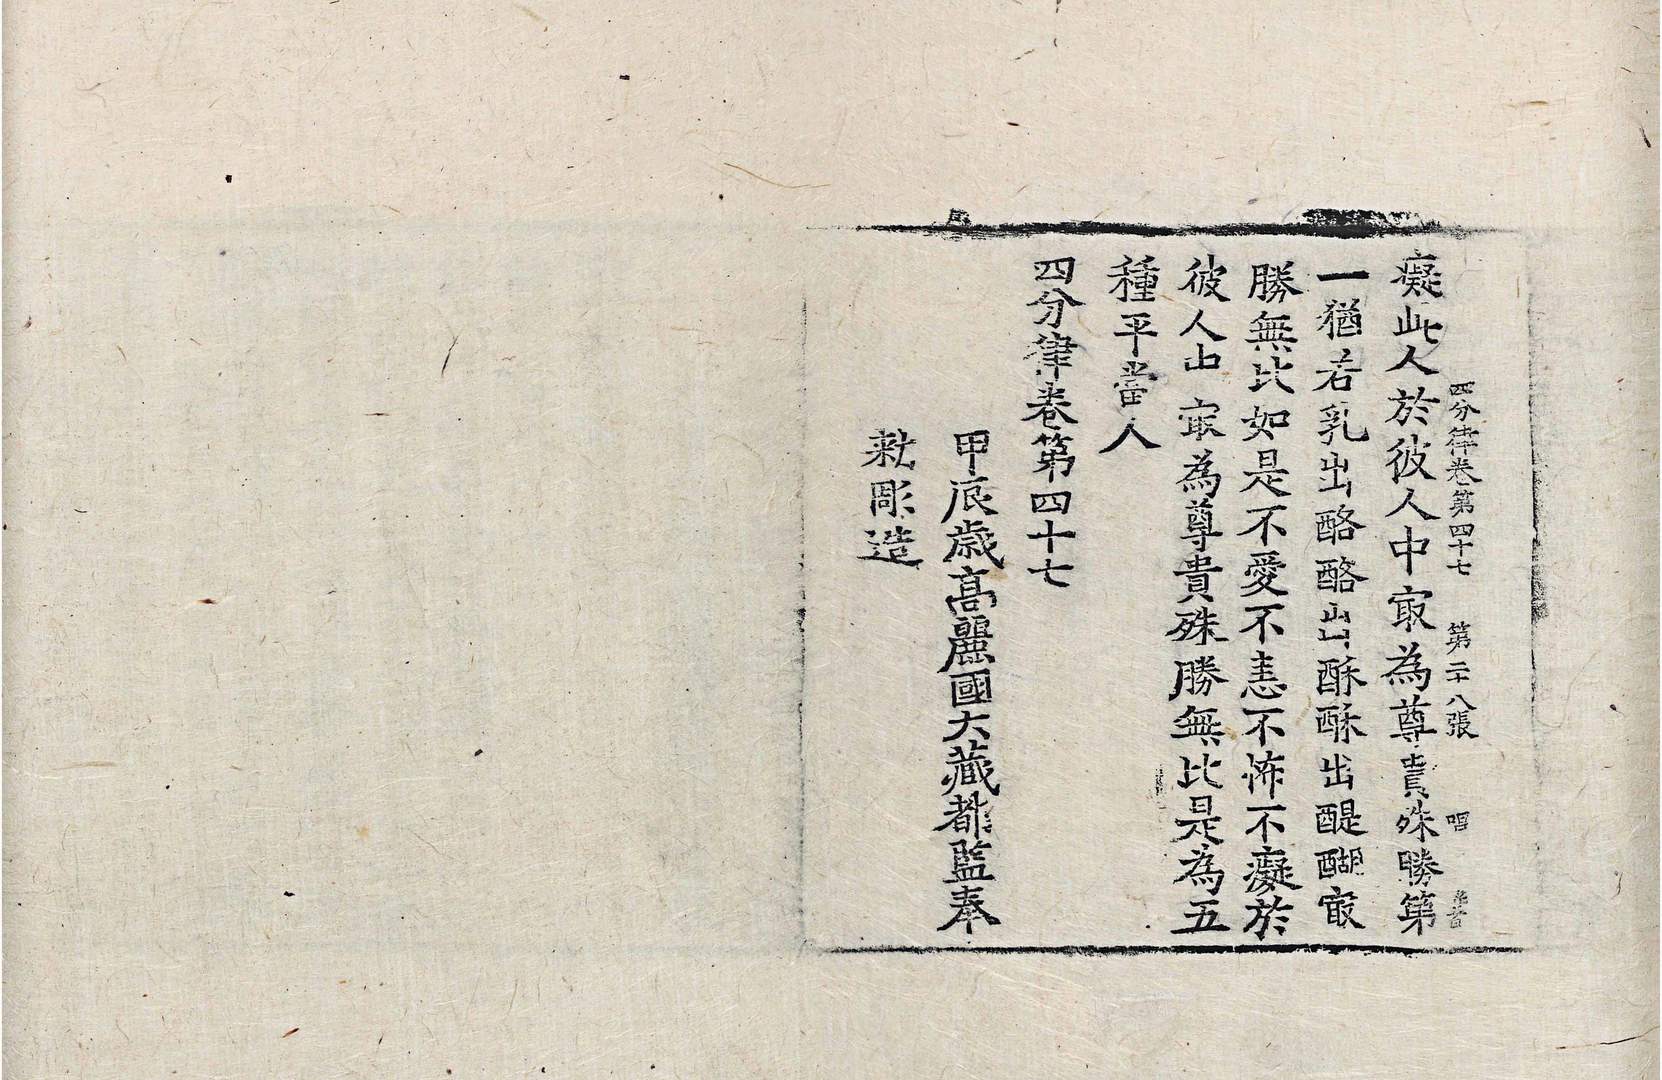 四分律卷第四十七 第二十八張 唱
癡此人於彼人中冣為尊貴殊勝第
一猶若乳出酪酪出酥酥出醍醐冣
勝無比如是不愛不恚不怖不癡於
彼人中冣為尊貴殊勝無比是為五
種平當人
四分律卷第四十七
甲辰歲高麗國大藏都監奉
勑彫造